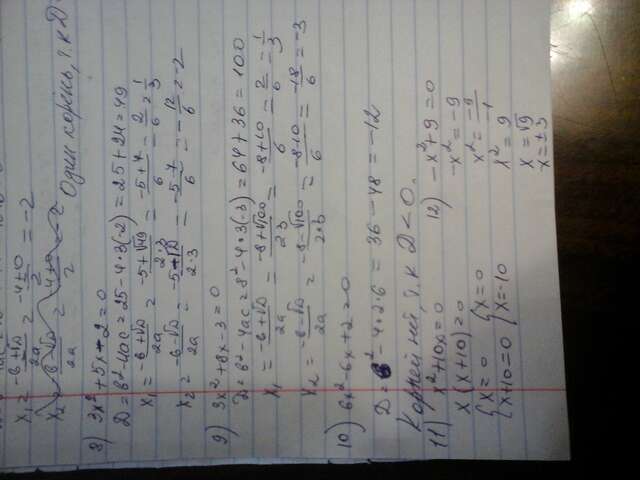 x₁ = (-b+√D)/2a = (-4+0)/2 = -2
Один корінь, т.к D
8) 3x²+5x-2=0
D=b²-4ac=25-4·3(-2)=25+24=49
x₁ = (-b+√D)/2a = (-5+√49)/2·3 = (-5+7)/6 = 2/6 = 1/3
x₂ = (-b-√D)/2a = (-5-√D)/2·3 = (-5-7)/6 = -12/6 = -2
9) 3x²+8x-3=0
D=b²-4ac=8²-4·3(-3)=64+36=100
x₁ = (-b+√D)/2a = (-8+√100)/2·3 = (-8+10)/6 = 2/6 = 1/3
x₂ = (-b-√D)/2a = (-8-√100)/2·3 = (-8-10)/6 = -18/6 = -3
10) 6x²-6x+2=0
D=b²-4·2·6=36-48=-12
т.к D<0.
11) x²+10x=0
x(x+10)=0
{x=0 {x=0
{x+10=0 {x=-10
12) -x²+9=0
-x²=-9
x²=-9/-1
x²=9
x=√9
x=±3